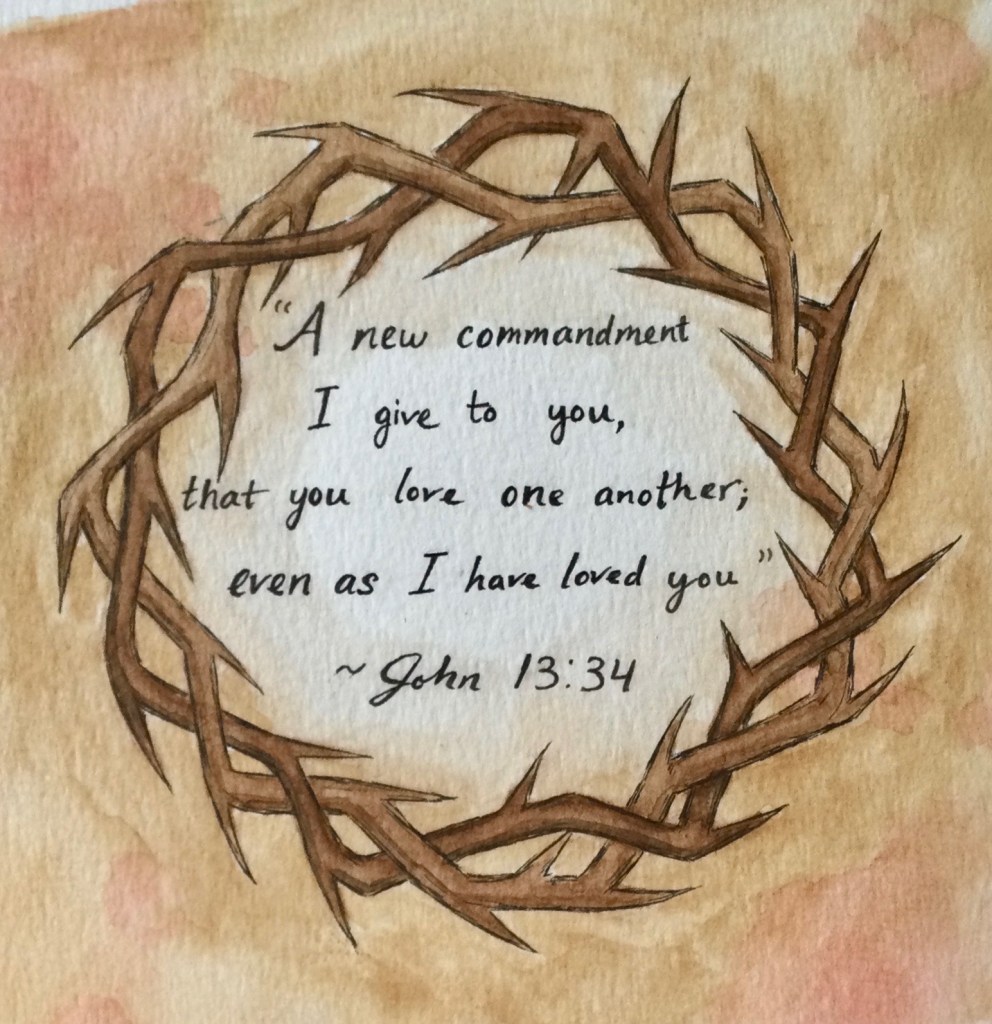 "A new commandment
I give to you,
that you love one another;
even as I have loved you"
~John 13:34